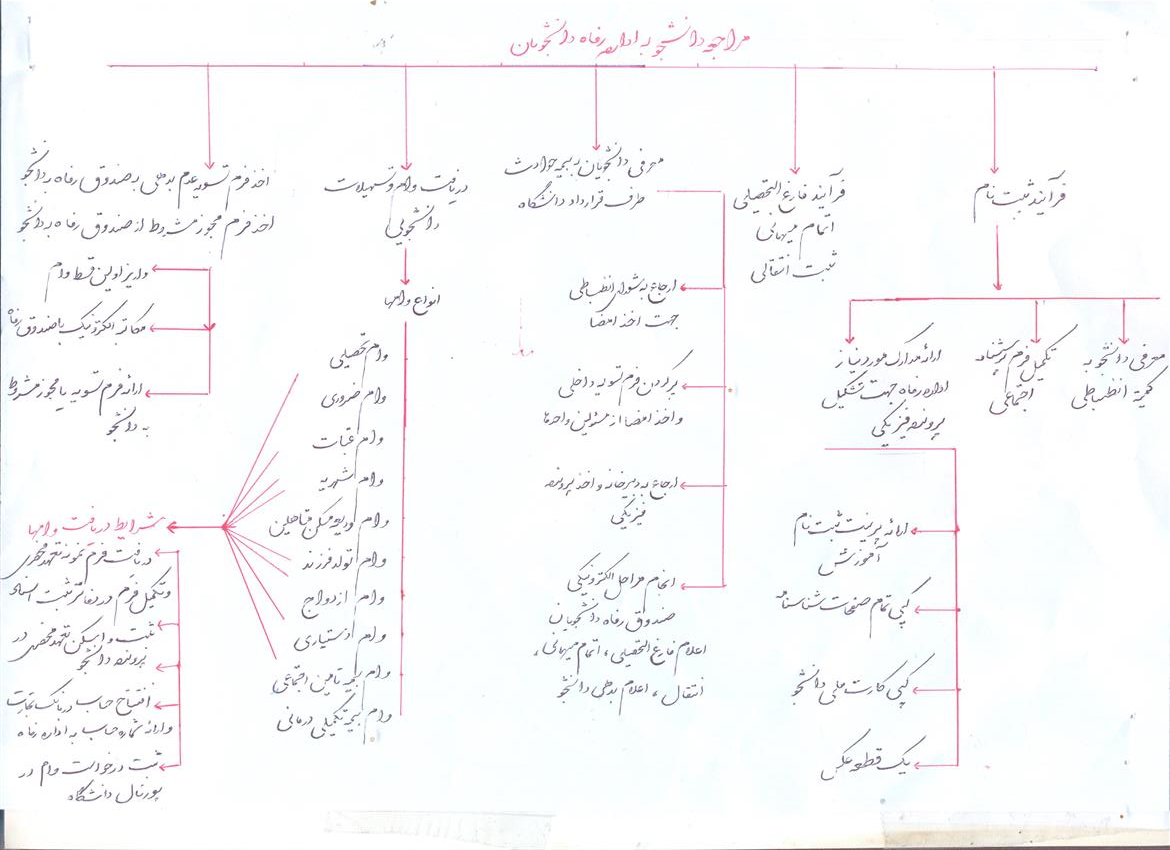 مراجعه دانشجو به اداره رفاه دانشجویان
فرآیند ثبت نام
معرفی دانشجو به
کمیته انظباطی
تکمیل فرم پرسشنامه
اجتماعی
ارائه مدارک مورد نیاز
اداره رفاه جهت تشکیل
پرونده فیزیکی
ارائه پرینت ثبت نام
آموزش
کپی تمام صفحات شناسنامه
کپی کارت ملی دانشجو
یک قطعه عکس
فرآیند فارغ التحصیلی
اتمام میهمانی
ثبت انتقالی
معرفی دانشجویان به بیمه حوادث
طرف قرارداد دانشگاه
ارجاع به شورای انظباطی
جهت اخذ امضا
پر کردن فرم تسویه داخلی
و اخذ امضا از مسئولین واحدها
ارجاع به دبیرخانه و اخذ پرونده
فیزیکی
انجام مراحل الکترونیکی
صندوق رفاه دانشجویان
اعلام فارغ التحصیلی، اتمام میهمانی،
انتقال، اعلام بدهی دانشجو
دریافت وام و تسهیلات
دانشجویی
انواع وامها
وام تحصیلی
وام ضروری
وام عتبات
وام شهریه
وام ودیعه مسکن متاهلین
وام تولد فرزند
وام ازدواج
وام دستیاری
وام بیمه تامین اجتماعی
وام بیمه تکمیلی درمانی
شرایط دریافت وامها
دریافت فرم نمونه تعهد محضری
و تکمیل فرم در دفاتر ثبت اسناد
ثبت و اسکن تعهد محضری در
پرونده دانشجو
افتتاح حساب در بانک تجارت
و ارائه شماره حساب به اداره رفاه
ثبت درخواست وام در
پورتال دانشگاه
اخذ فرم تسویه عدم بدهی به صندوق رفاه به دانشجو
اخذ فرم مجوز مشروط از صندوق رفاه به دانشجو
واریز اولین قسط وام
مکاتبه الکترونیک با صندوق رفاه
ارائه فرم تسویه یا مجوز مشروط
به دانشجو